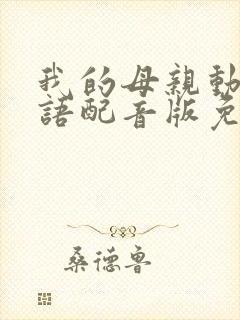 我的母親動
語配音版免
桑德鲁